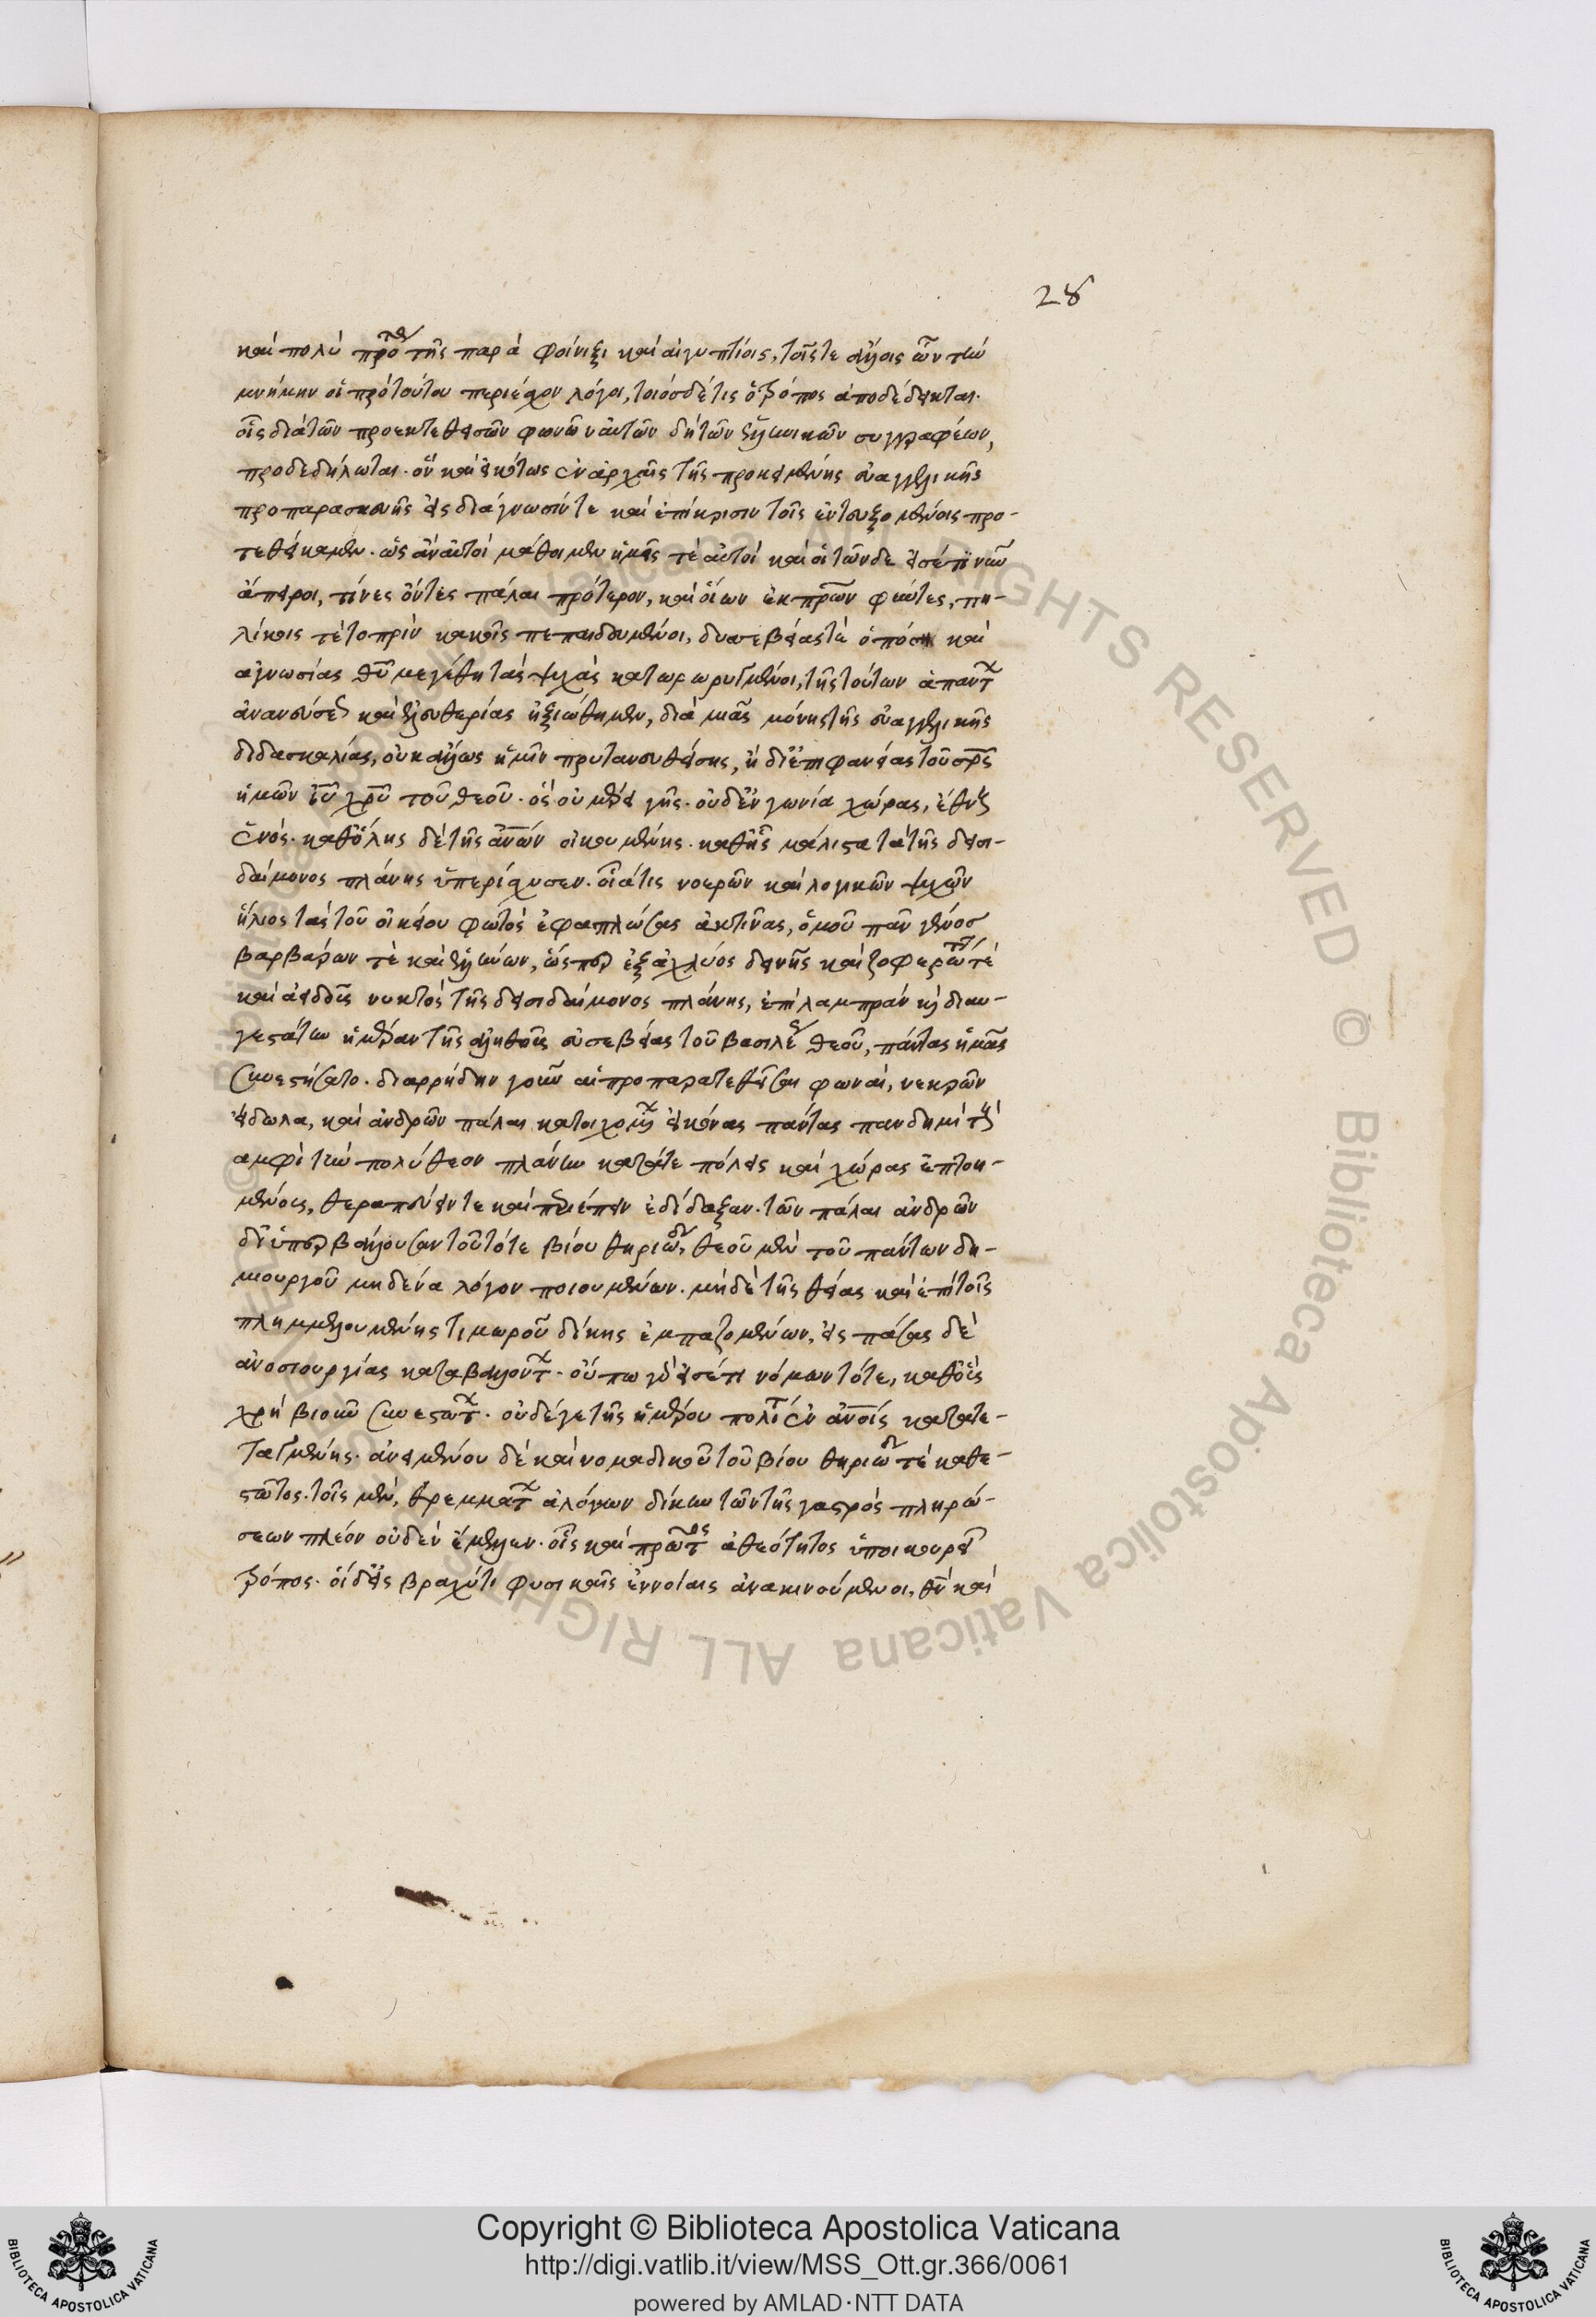 28
καὶ πολὺ πρότερον τῆς παρὰ φοίνιξι καὶ αἰγυπτίοις, τοῖς τε ἄλλοις ὧν τὴν
μνήμην οἱ πρὸ τούτου περιέχον λόγοι, τοιόσδέ τις ὁ τρόπος ἀποδέδεικται.
οἷς διὰ τῶν προεκτεθεισῶν φωνῶν αὐτῶν δὴ τῶν ἑλληνικῶν συγγραφέων,
προδεδήλωται. ὃν καὶ εἰκότως ἐν ἀρχαῖς τῆς προκειμένης εὐαγγελικῆς
προπαρασκευῆς εἰς διάγνωσίν τε καὶ ἐπίκρισιν τοῖς ἐντευξομένοις προ-
τεθείκαμεν. ὡς ἂν αὐτοὶ μάθοιμεν ἡμεῖς τὲ αὐτοὶ καὶ οἱ τῶνδε εἰσέτι νῦν
ἄπειροι, τίνες ὄντες πάλαι πρότερον, καὶ οἵων ἐκ πρων φύντες, πη-
λίκοις τὲ τὸ πρὶν κακοῖς πεπαιδευμένοι, δυσεβείας τὲ ὁπόσης καὶ
ἀγνωσίας θυ μεγέθη τὰς ψυχὰς κατωρωρυγμένοι, τῆς τούτων ἁπάντων
ἀνανεύσεως καὶ ἐλευθερίας ἠξιώθημεν, διὰ μιᾶς μόνης τῆς εὐαγγελικῆς
διδασκαλίας, οὐκ ἄλλως ἡμῖν πρυτανευθείσης, ἢ δι' ἐπιφανείας τοῦ σρς
ἡμῶν ιυ χυ τοῦ θεοῦ. ὃς οὐ μέρει γῆς. οὐδ' ἐν γωνία χώρας, ἔθνους
ἑνός. καθ' ὅλης δὲ τῆς ανων οἰκουμένης. καθ' ἧς μάλιστα τὰ τῆς δεισι-
δαίμονος πλάνης ὑπερίσχυσεν. οἷά τις νοερῶν καὶ λογικῶν ψυχῶν
ἥλιος τὰς τοῦ οἰκείου φωτὸς ἐφαπλώσας ἀκτῖνας, ὁμοῦ πᾶν γένος
βαρβάρων τὲ καὶ ἑλλήνων, ὥσπερ ἐξ ἀχλύος δεινῆς καὶ ζοφερωτάτης
καὶ ἀειδοῦς νυκτὸς τῆς δεισιδαίμονος πλάνης, ἐπὶ λαμπρὰν καὶ διαυ-
γεστάτην ἡμέραν τῆς ἀληθοῦς εὐσεβείας τοῦ βασιλέως θεοῦ, πάντας ἡμᾶς
συνεστήσατο. διαρρήδην γοῦν αἱ προπαρατεθεῖσαι φωναὶ, νεκρῶν
εἴδωλα, καὶ ἀνδρῶν πάλαι κατοιχομένων εἰκόνας πάντας πανδημὶ τοὺς
ἀμφὶ τὴν πολύθεον πλάνην κατά τε πόλεις καὶ χώρας ἐπτοη-
μένους, θεραπεύειν τε καὶ περιέπειν ἐδίδαξαν. τῶν πάλαι ἀνδρῶν
δι' ὑπερβάλλουσαν τοῦ τότε βίου θηριωδίαν, θεοῦ μὲν τοῦ πάντων δη-
μιουργοῦ μηδένα λόγον ποιουμένων. μηδὲ τῆς θείας καὶ ἐπὶ τοῖς
πλημμελουμένης τιμωροῦ δίκης ἐμπαζομένων, εἰς πάσας δὲ
ἀνοσιουργίας καταβαλλόντων. οὔπω γὰρ εἰσέτι νόμων τότε, καθ' οὓς
χρὴ βιοῦν συνεστώτων. οὐδέ γε τῆς ἡμέρου πολιτείας ἐν ανοις κατατε-
ταγμένης. ἀνειμένου δὲ καὶ νομαδικοῦ τοῦ βίου θηριώδους τὲ καθε-
στῶτος. τοῖς μὲν, θρεμμάτων ἀλόγων δίκην τῶν τῆς γαστρὸς πληρώ-
σεων πλέον οὐδὲν ἔμελλεν. οἷς καὶ πρῶτος ἀθεότητος ὑποικουρεῖ
τρόπος. οἱ δ' εἰς βραχύ τι φυσικαῖς ἐννοίαις ἀνακινούμενοι, θν καὶ
Copyright © Biblioteca Apostolica Vaticana
http://digi.vatlib.it/view/MSS_Ott.gr.366/0061
powered by AMLAD·NTT DATA